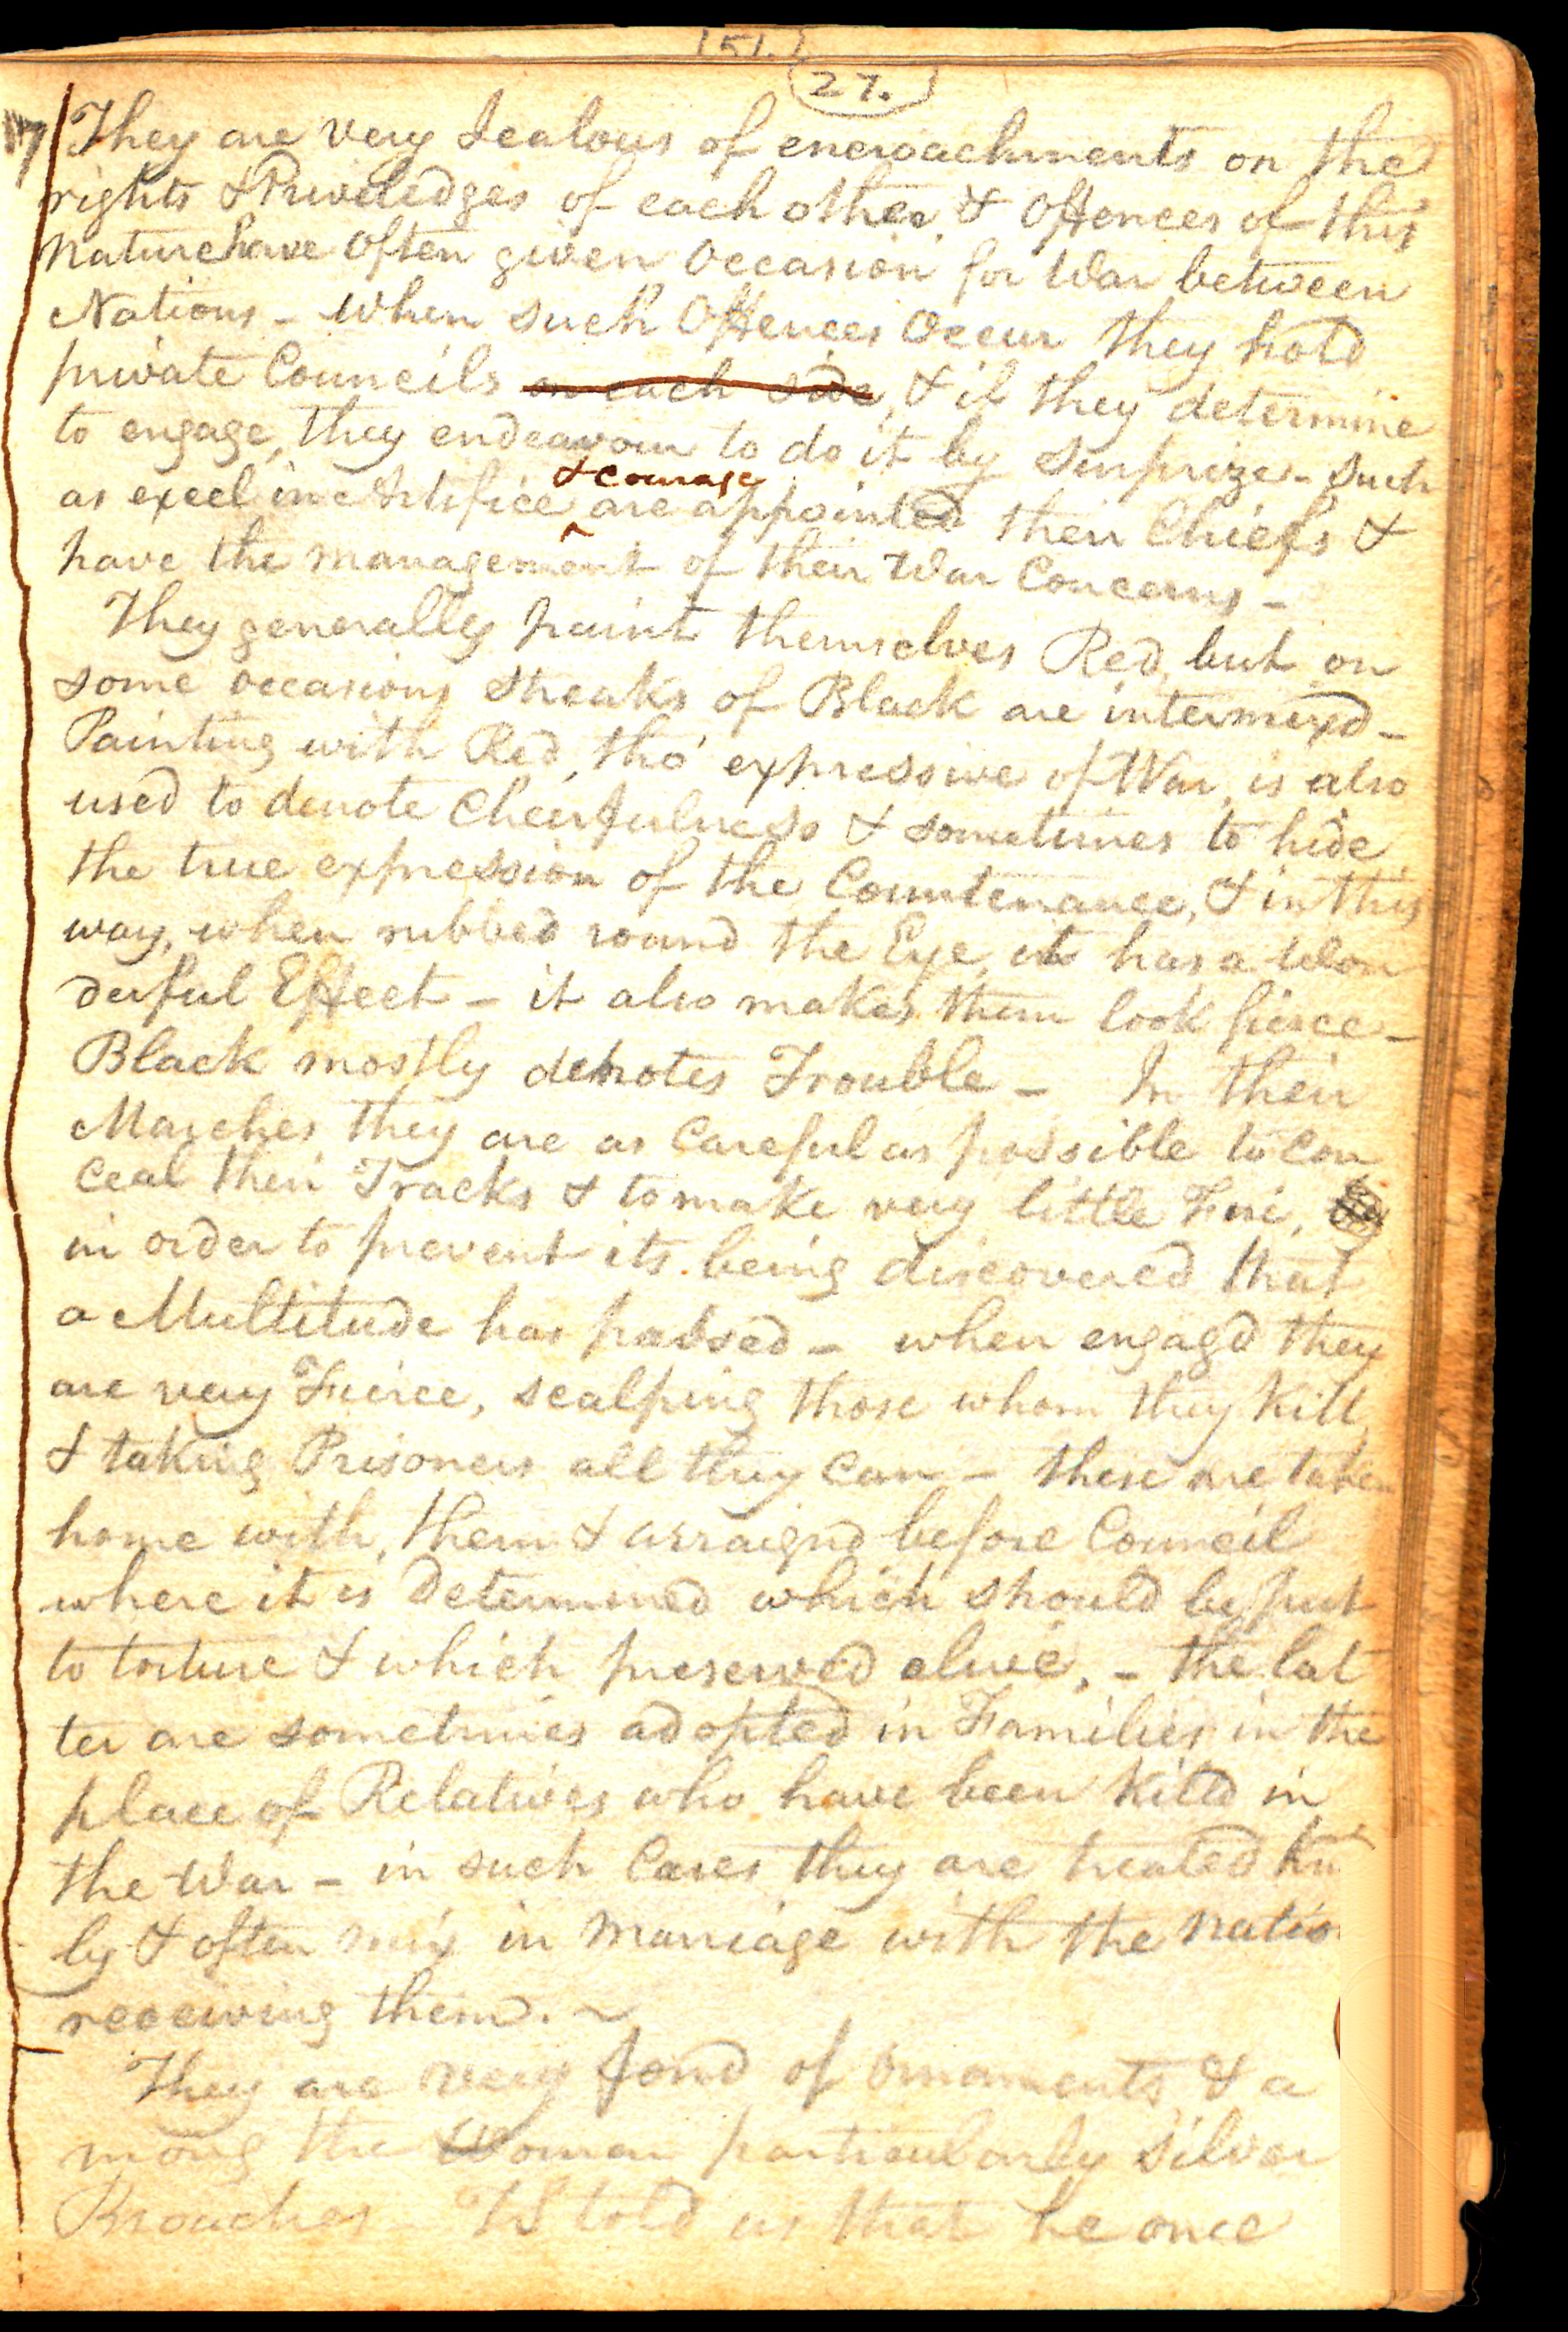 151.
27.
17
They are very Jealous of encroachments on the
rights & Priveledges of each other, & Offences of this
Nature have Often given Occasion for War between
Nations - When such Offences Occur they hold
private Councils on each side, & if they determine
to engage, they endeavour to do it by Surprize - Such
& courage
as excel in Artifice are appointed their Chiefs &
have the management of their War Concerns -
They generally paint themselves Red, but on
some occasions Streaks of Black are intermixd -
Painting with Red, tho' expressive of War, is also
used to denote Cheerfulness & sometimes to hide
the true expression of the Countenance, & in this
way, when rubbed round the Eye, it has a Won
derful Effect - it also makes them look fierce -
Black mostly denotes Trouble - In their
Marches they are as Careful as possible to Con
ceal their Tracks & to make very little Fire,
in order to prevent its being discovered that
a Multitude has passed - when engagd they
are very Fierce, scalping those whom they Kill
& taking Prisoners all they Can - these are taken
home with, them & arraignd before Council
where it is Determined which should be put
to torture & which preserved alive, - the lat
ter are sometimes adopted in Families in the
place of Relatives who have been Killd in
the War - in such Cases they are treated kin
ly & often mix in Marriage with the Natio
receiving them. ~
They are very fond of Ornaments & a
mong the Women particularly Silver
Broaches - IS told us that he once